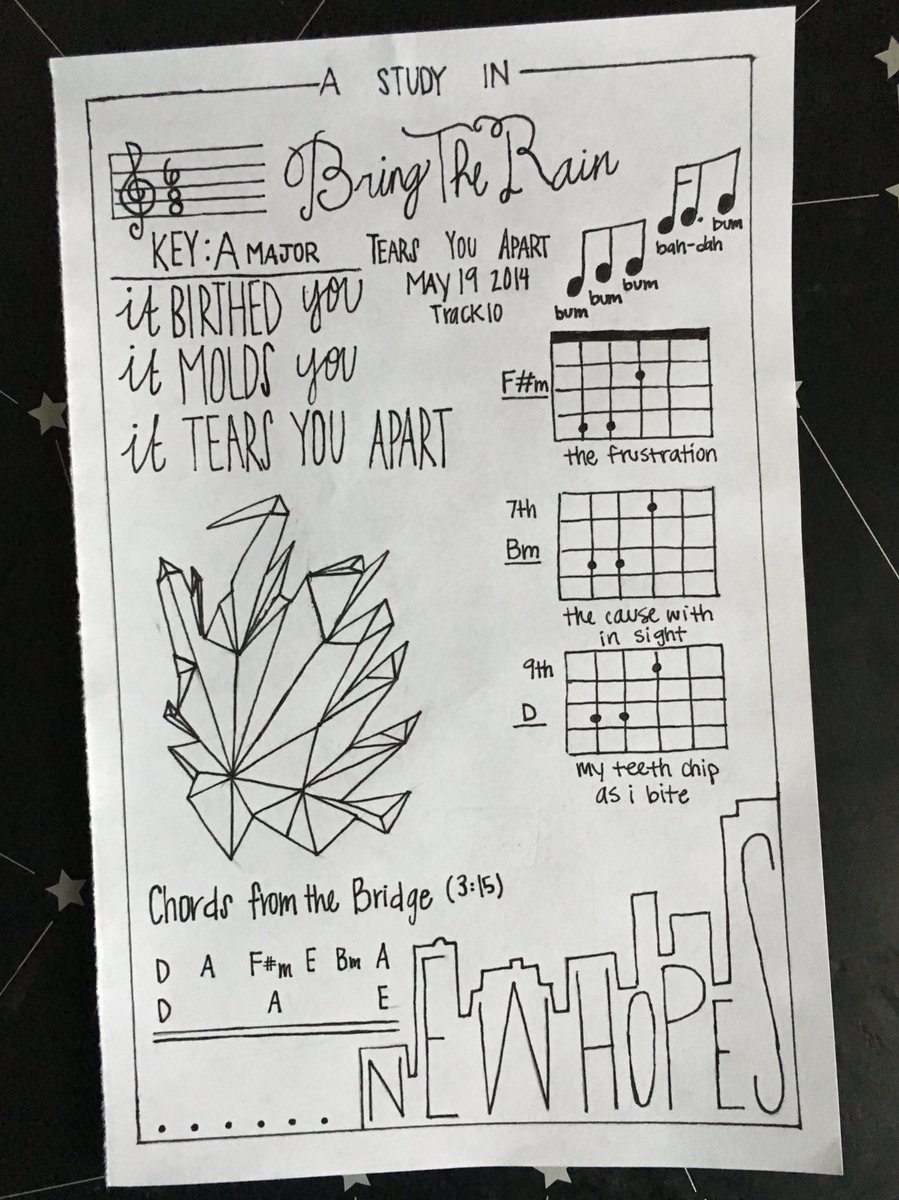 A STUDY IN
Bring The Rain
6
8
KEY: A MAJOR
TEARS YOU APART
MAY 19 2014
Track 10
it BIRTHED you
it MOLDS you
it TEARS YOU APART
bum bum bum bah-dah bum
F#m
the frustration
7th
Bm
the cause with
in sight
9th
D
my teeth chip
as i bite
Chords from the Bridge (3:15)
D A F#m E Bm A
D A E
NEW HOPES